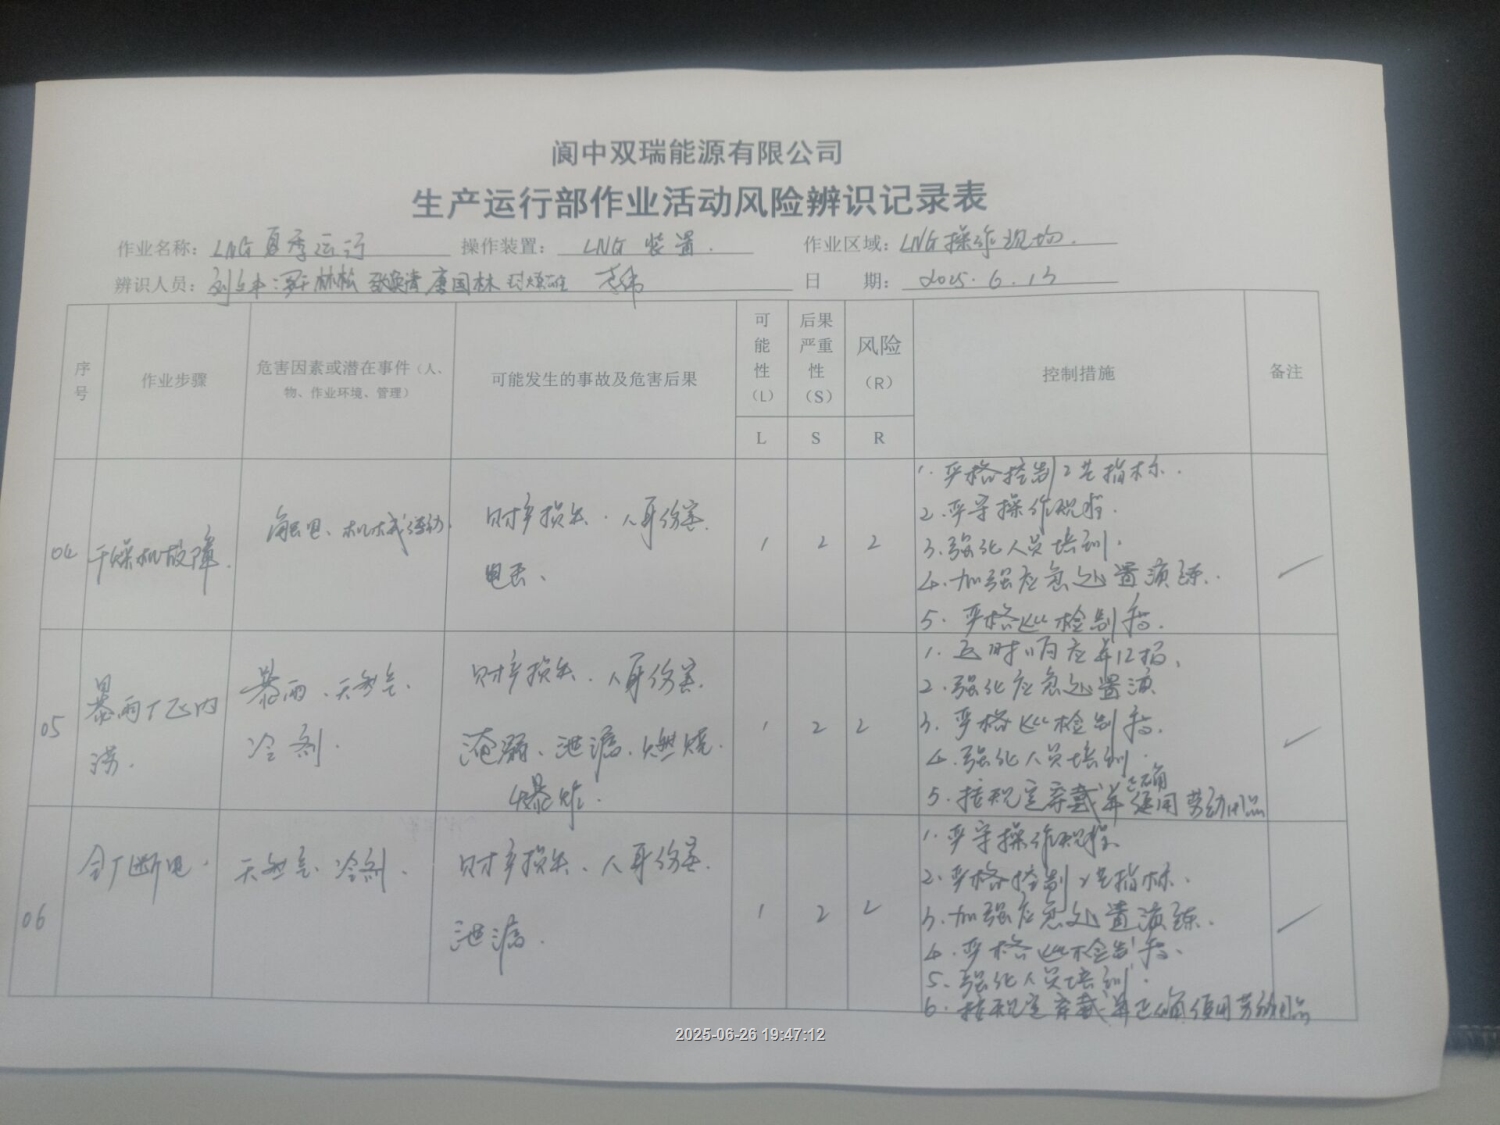 阆中双瑞能源有限公司
生产运行部作业活动风险辨识记录表
作业名称： LNG夏季运行 操作装置： LNG 装置. 作业区域： LNG操作现场.
辨识人员： 唐国林 日 期： 2025.6.13
序号 作业步骤 危害因素或潜在事件（人、物、作业环境、管理） 可能发生的事故及危害后果 可能性（L） 后果严重性（S） 风险（R） 控制措施 备注
L S R
04 干燥机故障. 触电、机械传动. 财产损失、人身伤害. 电击、 1 2 2
1.严格控制工艺指标.
2.严守操作规程.
3.强化人员培训.
4.加强应急处置演练.
5.严格巡检制度.
05 暴雨厂区内涝. 暴雨、天然气. 冷剂. 财产损失、人身伤害. 淹溺、泄漏、燃烧. 爆炸. 1 2 2
2.强化应急处置演
3.严格巡检制度.
4.强化人员培训.
5.按规定穿戴并正确使用劳动用品
06 全厂断电. 天然气、冷剂. 财产损失、人身伤害. 泄漏. 1 2 2
1.严守操作规程.
2.严格控制工艺指标.
3.加强应急处置演练.
4.严格巡检制度.
5.强化人员培训.
6.按规定穿戴并正确使用劳动用品
2025-06-26 19:47:12